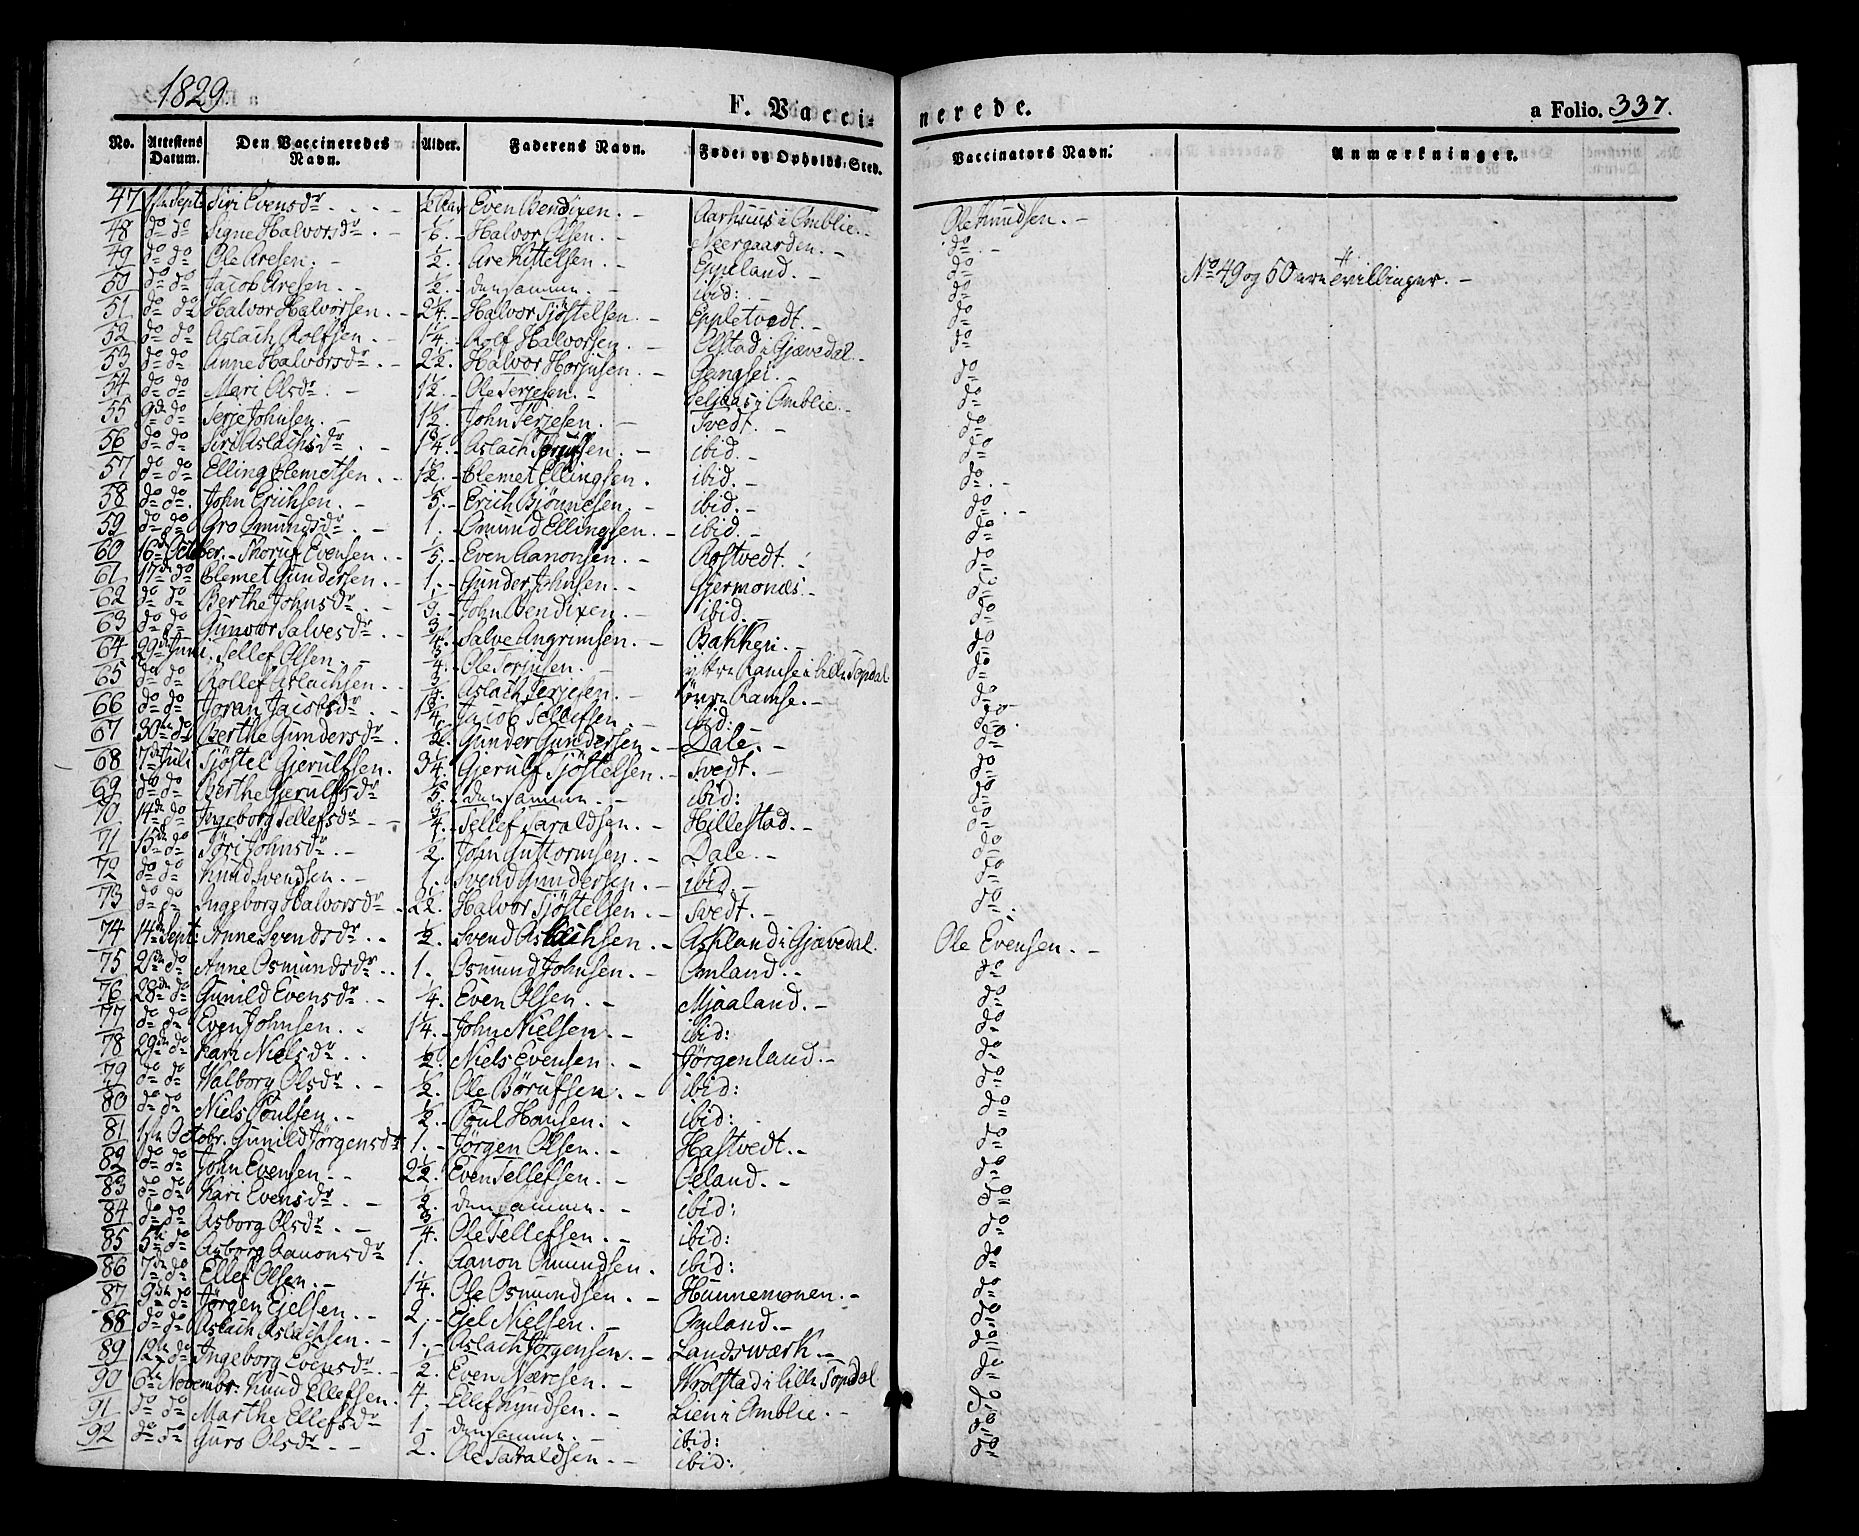 1829.
F. Vaccinerede.
a Folio. 337.
No. Attestens Datum. Den Vaccineredes Navn. Alder. Faderens Navn. Fødes og Opholds-Sted. Vaccinators Navn. Anmærkninger.
47 Sept: Siri Evensdr. Even Bendixen. Aarhuus i Omblie. Ole Knudsen.
48 do do Signe Halvorsdr. Halvor Olsen. Neergaarden. do
49 do do Ole Aresen. 1/2. Are Kittelsen. Eppeland. do
50 do do Jacob Aresen. 1/2. densamme. ibid: do No 49 og 50 ere Tvillinger.
51 do do Halvor Halvorsen. Halvor Sjöstelsen. Eppletvedt. do
52 do do Aslach Rolfsen. 1 1/4. Rolf Halvorsen. Olstad i Gjævedal. do
53 do do Anne Halvorsdr. 2 1/2. Halvor Horjusen. Gangsei. do
54 do do Mari Olsdr. 1 1/2. Ole Terjesen. Seljaas i Omblie. do
55 9de do Terje Johnsen. 1 1/2. John Terjesen. Tvedt. do
56 do do Siri Aslachsdr. 1 3/4. Aslach ibid. do
57 do do Elling Clemetsen. 1 1/2. Clemet Ellingsen. ibid. do
58 do do John Erichsen. Erich Bjönnesen. ibid. do
59 do do Gro Omundsdr. 1. Omund Ellingsen. ibid. do
60 16de October. Thoruf Evensen. Even Aanonsen. Rostvedt. do
61 17de do Clemet Gundersen. 1. Gunder Johnsen. Gjermonæs. do
62 do do Berthe Johnsdr. John Bendixen. ibid. do
63 do do Gunvor Salvesdr. Salve Angrimsen. Bakken. do
64 29de Juni. Tellef Olsen. 3/4. Ole Torjusen. ytre Ramse i lille Topdal. do
65 do do Rollef Aslachsen. 3/4. Aslach Terjesen. övre Ramse. do
66 do do Joran Jacobsdr. 1 3/4. Jacob Tellefsen. ibid: do
67 30te do Berthe Gundersdr. Gunder Gundersen. Dale. do
68 7de Juli Sjöstel Gjerulfsen. 3 1/4. Gjerulf Sjöstelsen. Tvedt. do
69 do do Berthe Gjerulfsdr densamme. ibid: do
70 14de do Ingeborg Tellefsdr. 3/4. Tellef Taraldsen. Hillestad. do
71 15de do Siri Johnsdr. 2. John Guttormsen. Dale. do
72 do do Knud Svendsen. 1. Svend Gundersen. ibid. do
73 do do Ingeborg Halvorsdr. 2 1/2. Halvor Sjöstelsen. Tvedt. do
74 14de Sept: Anne Svendsdr. 1/2. Svend Aslachsen. Askland i Gjævedal. Ole Evensen.
75 do Anne Osmundsdr. 1. Osmund Johnsen. Omland. do
76 28de do Gunild Evensdr. 1/4. Even Olsen. Mjaaland. do
77 do do Even Johnsen. 1 1/4. John Nielsen. ibid: do
78 29de do Kari Nielsdr. 1/2. Niels Evensen. Jörgenland. do
79 do do Valborg Olsdr. 1/2. Ole Börufsen. ibid: do
80 do do Niels Poulsen. 1/2. Poul Hansen. ibid: do
81 Octobr. Gunild Jörgensdr 1. Jörgen Olsen. Hastvedt. do
82 do do John Evensen. 2 1/2. Even Tellefsen. Oeland. do
83 do do Kari Evensdr. 1/2. densamme. ibid: do
84 do do Asborg Olsdr. 3/4. Ole Tellefsen. ibid: do
85 5te do Asborg Aanonsdr 1. Aanon Omundsen. ibid: do
86 7de do Ellef Olsen. 1 1/4. Ole Osmundsen. Hunnemonen. do
87 9de do Jörgen Ejelsen. 2. Ejel Nielsen. Omland. do
88 do do Aslach Aslachsen. 1. Aslach Jörgensen. Landsværk. do
89 12te do Ingeborg Evensdr. 1/2. Even Næresen. Wrolstad i lille Topdal do
90 6te Novembr: Knud Ellefsen. 4. Ellef Knudsen. Lien i Omblie. do
91 do do Marthe Ellefsdr 1. densamme. ibid: do
92 do do Guro Olsdr. 2. Ole Taraldsen. ibid: do